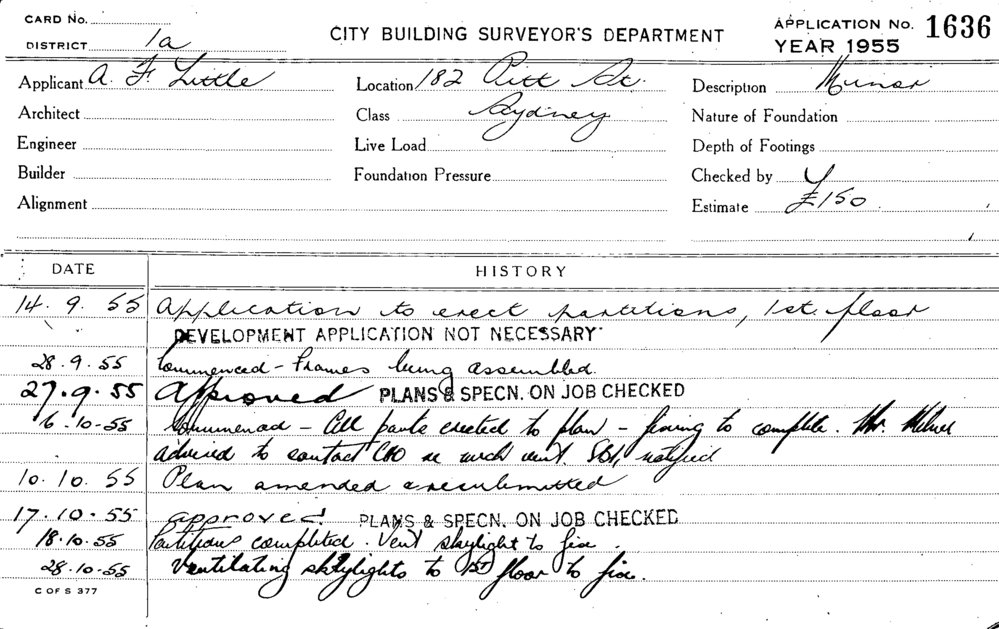 CARD No.
DISTRICT 1a
CITY BUILDING SURVEYOR'S DEPARTMENT
APPLICATION No. 1636
YEAR 1955
Applicant A. F. Little
Location 182 Pitt St.
Description Minor
Architect
Class Sydney
Nature of Foundation
Engineer
Live Load
Depth of Footings
Builder
Foundation Pressure
Checked by
Alignment
Estimate £150
DATE HISTORY
14. 9. 55 Application to erect partitions, 1st. floor
DEVELOPMENT APPLICATION NOT NECESSARY
28.9.55 Commenced - Frames being assembled.
27.9.55 Approved PLANS & SPECN. ON JOB CHECKED
6.10.55 Commenced - All parts erected to plan - fixing to complete. Mr.
advised to contact re mech vent. notified
10.10.55 Plan amended & resubmitted
17.10.55 approved. PLANS & SPECN. ON JOB CHECKED
18.10.55 Partitions completed. Vent skylight to fix.
28.10.55 Ventilating skylights to 1st floor to fix.
C OF S 377